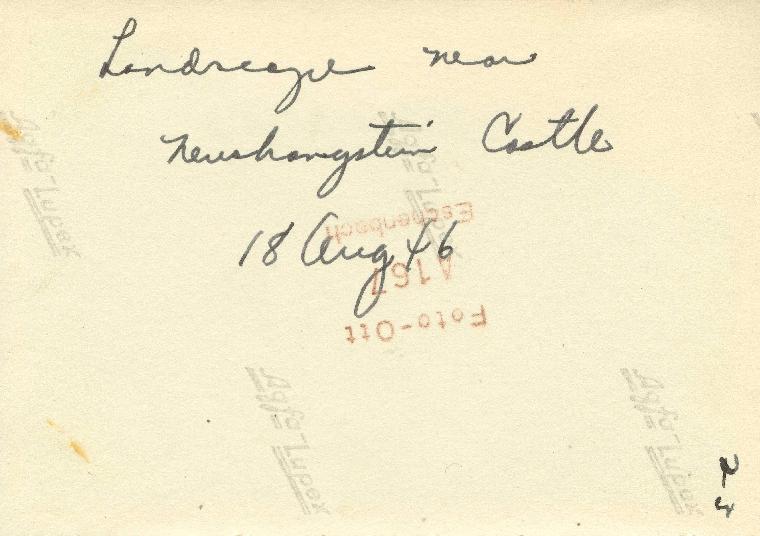 Landscape near
Neushangstein Castle
18 Aug 46
Foto-Ott
A167
Eschenbach
Agfa-Lupex
Agfa-Lupex
Agfa-Lupex
Agfa-Lupex